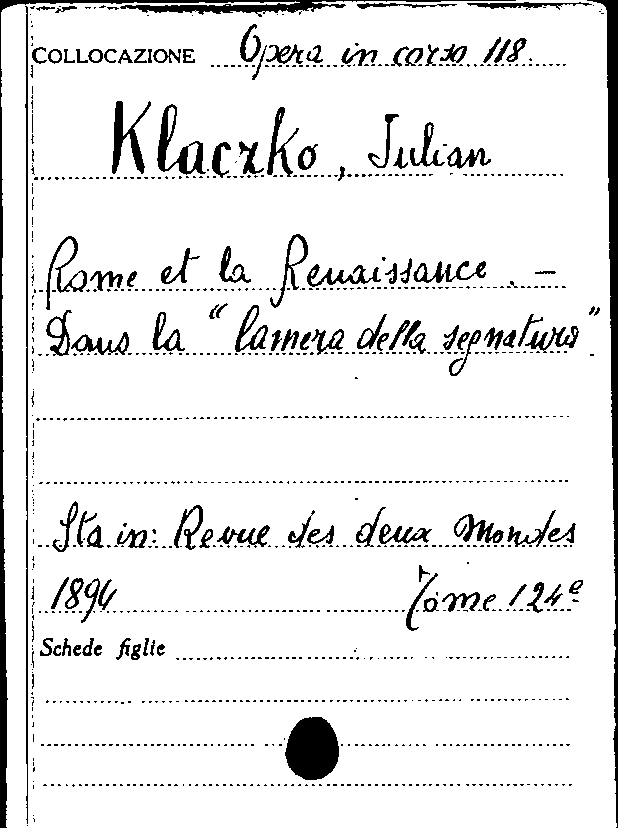 COLLOCAZIONE Opera in corso 118.
Klaczko, Julian
Rome et la Renaissance. –
Dans la "Camera della segnatura"
Sta in: Revue des deux Mondes
1894 Tome 124e
Schede figlie